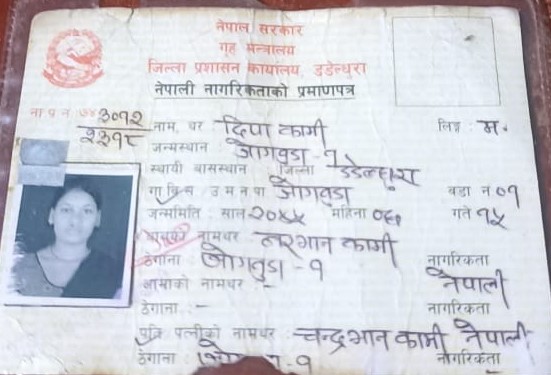 नेपाल सरकार
गृह मन्त्रालय
जिल्ला प्रशासन कार्यालय, डडेल्धुरा
नेपाली नागरिकताको प्रमाणपत्र
ना प्र न
नाम, थर दिपा कामी लिङ्ग : म.
जन्मस्थान जोगवुडा - १
स्थायी बासस्थान : जिल्ला डडेल्धुरा
गा वि स / उ म न पा जोगवुडा वडा नं ०१
जन्ममिति : साल २०४५ महिना ०६ गते १५
बाबुको नामथर नरभान कामी
ठेगाना : जोगवुडा - १ नागरिकता
आमाको नामथर :- नेपाली
ठेगाना :- नागरिकता
पति पत्नीको नामथर :- चन्द्रभान कामी नेपाली
ठेगाना : - १ नागरिकता